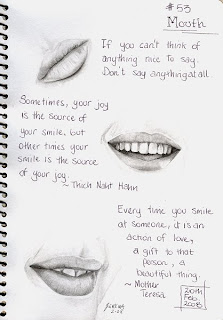 #53
Mouth
If you can't think of
anything nice To say.
Don't say anything at all.
Sometimes, your joy
is the source of
your smile, but
other times your
smile is the source
of your joy.
~ Thich Naht Hahn
Every time you smile
at someone, it is an
action of love,
a gift to that
person, a
beautiful thing.
~ Mother
Teresa
20th
Feb.
2008